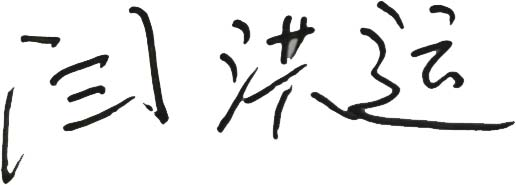 闫洪运